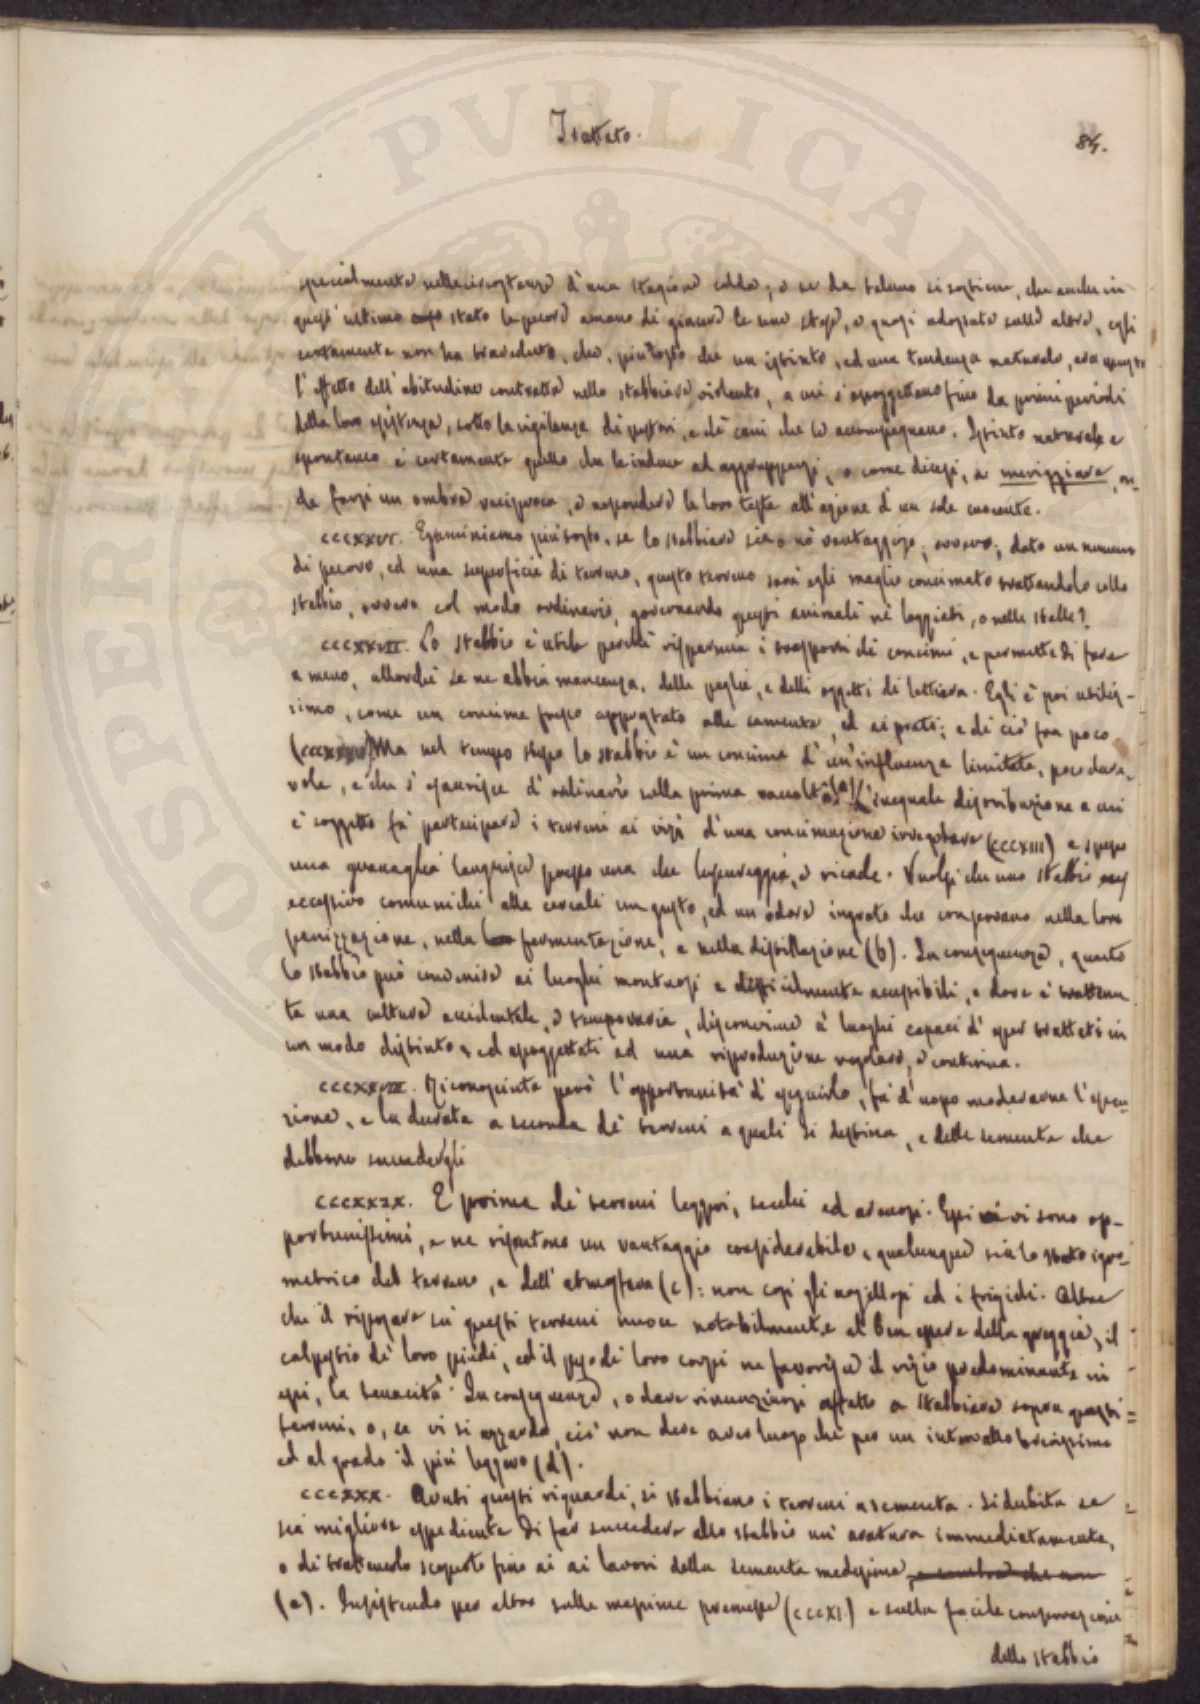 Trattato.
84.
specialmente nelle circostanze d'una stagione calda; e se da taluno si sostiene, che anche in
quest'ultimo stato le pecore amano di giacere le une stese, e quasi adossate sulle altre, egli
certamente non ha traveduto, che, piuttosto che un istinto, ed una tendenza naturale, era questo
l'effetto dell'abitudine contratta nello stabbiare violento, a cui s'assoggettano fino da primi periodi
della loro esistenza, sotto la vigilanza di pastori, e de' cani che le accompagnano. Istinto naturale e
spontaneo è certamente quello che le induce ad aggrupparsi, o come dicesi, a meriggiare, on-
de farsi un ombra reciproca, e nascondere le loro teste all'azione d'un sole cuocente.
CCCXXVI. Esaminiamo piuttosto, se lo stabbiare sia o nò vantaggioso, ovvero, dato un numero
di pecore, ed una superficie di terreno, questo terreno sarà egli meglio concimato trattandolo collo
stabbio, ovvero col modo ordinario, governando questi animali nè loggiati, o nelle stalle?
CCCXXVII. Lo stabbio è utile perchè risparmia i trasporti di concimi, e permette di fare
a meno, allorchè se ne abbia mancanza, delle paglie, e delli oggetti di lettiera. Egli è poi utilis-
simo, come un concime fresco apprestato alle sementa, ed ai prati; e di ciò fra poco
Ma nel tempo stesso lo stabbio è un concime d'un'influenza limitata, poco dure-
vole, e che s'esaurisce d'ordinario sulla prima raccolta (a). L'ineguale distribuzione a cui
è soggetto fà partecipare i terreni ai vizi d'una concimazione irregolare (CCCXIII) e spesso
una granaglia languisce presso una che lussureggia, e ricade. Vuolsi che uno stabbio
eccessivo comunichi alle cereali un gusto, ed un odore ingrato che conservano nella loro
panizzazione, nella fermentazione, e nella distillazione (b). In conseguenza, quanto
lo stabbio può convenire ai luoghi montuosi e difficilmente accessibili, e dove è trattenu
ta una cultura accidentale, e temporaria, disconviene a' luoghi capaci d'esser trattati in
un modo distinto, ed assoggettati ad una riproduzione regolare, e continua.
CCCXXVIII. Riconosciuta però l'opportunità d'eseguirlo, fa d'uopo moderarne l'esecu-
zione, e la durata a seconda de' terreni a quali si destina, e delle sementa che
debbono succedergli
CCCXXIX. E prima de' terreni leggeri, secchi ed arenosi. Essi vi sono op-
portunissimi, e ne risentono un vantaggio considerabile, qualunque sia lo stato igro-
metrico del terreno, e dell'atmosfera (c): non così gli argillosi ed i frigidi. Oltre
che il riposare su questi terreni nuoce notabilmente al ben essere della greggia, il
calpestio de' loro piedi, ed il peso de' loro corpi ne favorisce il vizio predominante in
essi, la tenacità. In conseguenza, o deve rinunziarsi affatto a stabbiare sopra questi
terreni, o, se vi si azzarda, ciò non deve aver luogo che per un intervallo brevissimo
ed al grado il più leggero (d).
CCCXXX. Avuti questi riguardi, si stabbiano i terreni a sementa. Si dubita se
sia migliore espediente di far succedere allo stabbio un'aratura immediatamente,
o di trattenerlo scoperto fino ai ai lavori della sementa medesima, e sembra che non
(a). Insistendo per altro sulle massime premesse (CCCXI) e sulla facile conservazione
dello stabbio